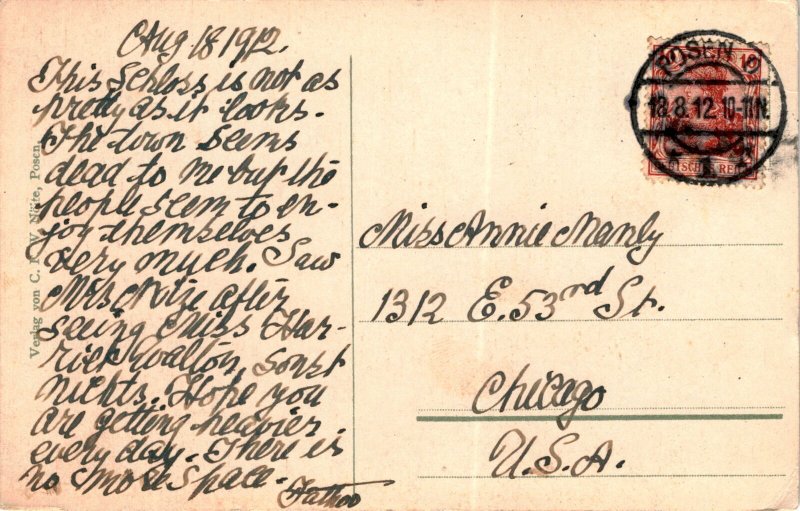 Aug 18 1912.
This Schloss is not as
pretty as it looks.
The town seems
dead to me but the
people seem to en-
joy themselves
very much. Saw
Mrs Notze after
seeing Miss Har-
riet Walton, sonst
nichts. Hope you
are getting heavier
every day. There is
no more space.
Verlag von C. Posen.
POSEN O
18.8.12 10-11N
* 1 *
10
Miss Annie Manly
1312 E. 53rd St.
Chicago
U.S.A.